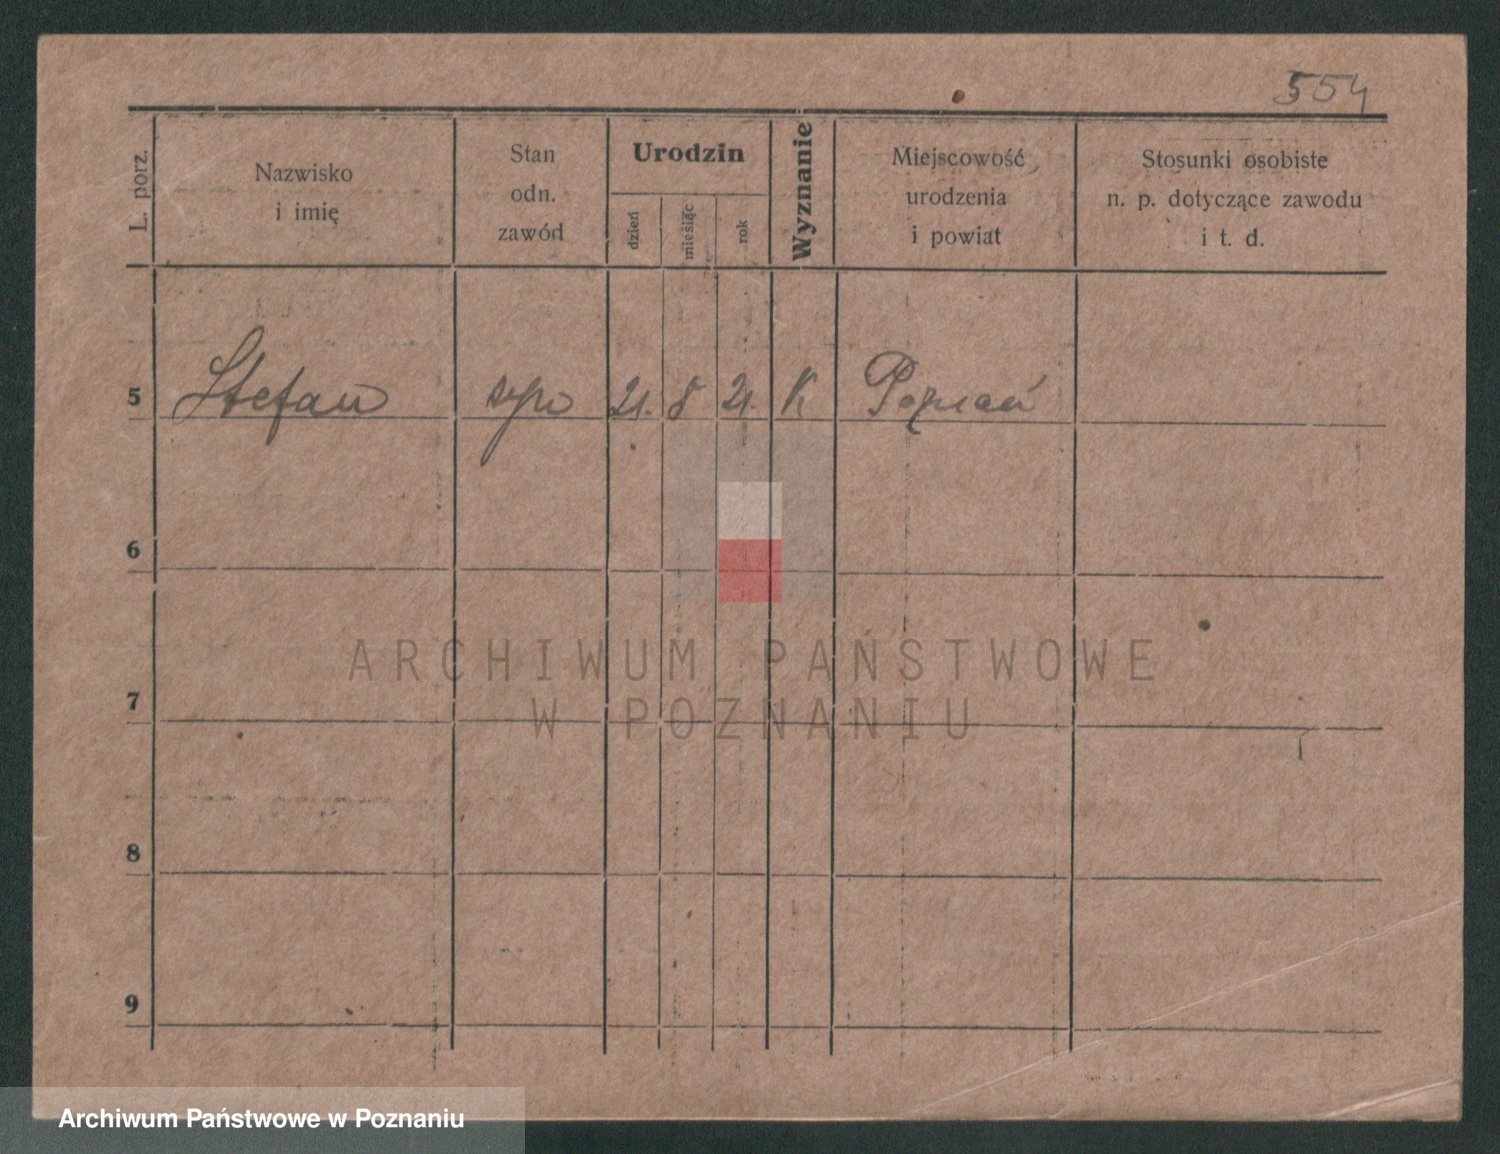 554
L. porz.
Nazwisko
i imię
Stan
odn.
zawód
Urodzin
dzień
miesiąc
rok
Wyznanie
Miejscowość
urodzenia
i powiat
Stosunki osobiste
n. p. dotyczące zawodu
i t. d.
5 Stefan 21. 8 21. K Poznań
6
7
8
9
ARCHIWUM PAŃSTWOWE
W POZNANIU
Archiwum Państwowe w Poznaniu